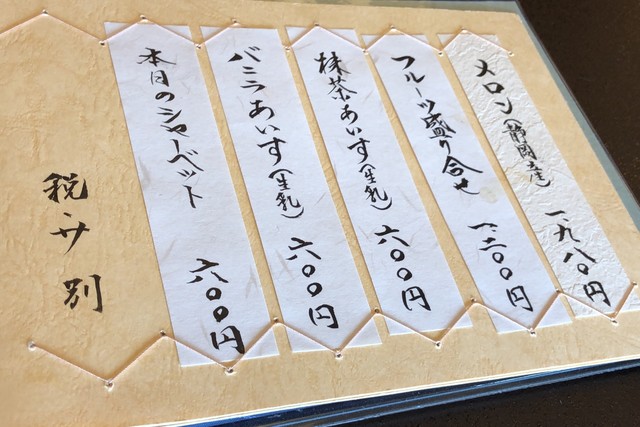 メロン(静岡産) 一、九八〇円
フルーツ盛り合せ 一、二〇〇円
抹茶あいす(生乳) 六〇〇円
バニラあいす(生乳) 六〇〇円
本日のシャーベット 六〇〇円
税・サ別